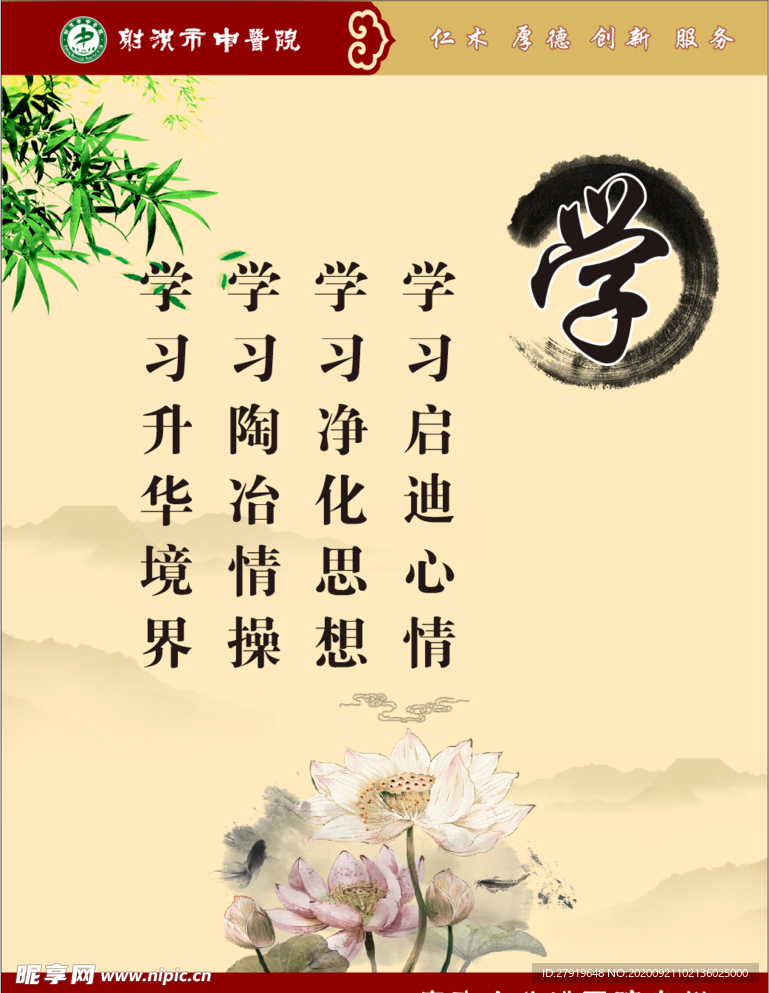 射洪市中医院
仁术 厚德 创新 服务
学
学习启迪心情
学习净化思想
学习陶冶情操
学习升华境界
昵享网 www.nipic.cn
ID:27919648 NO:20200921102136025000